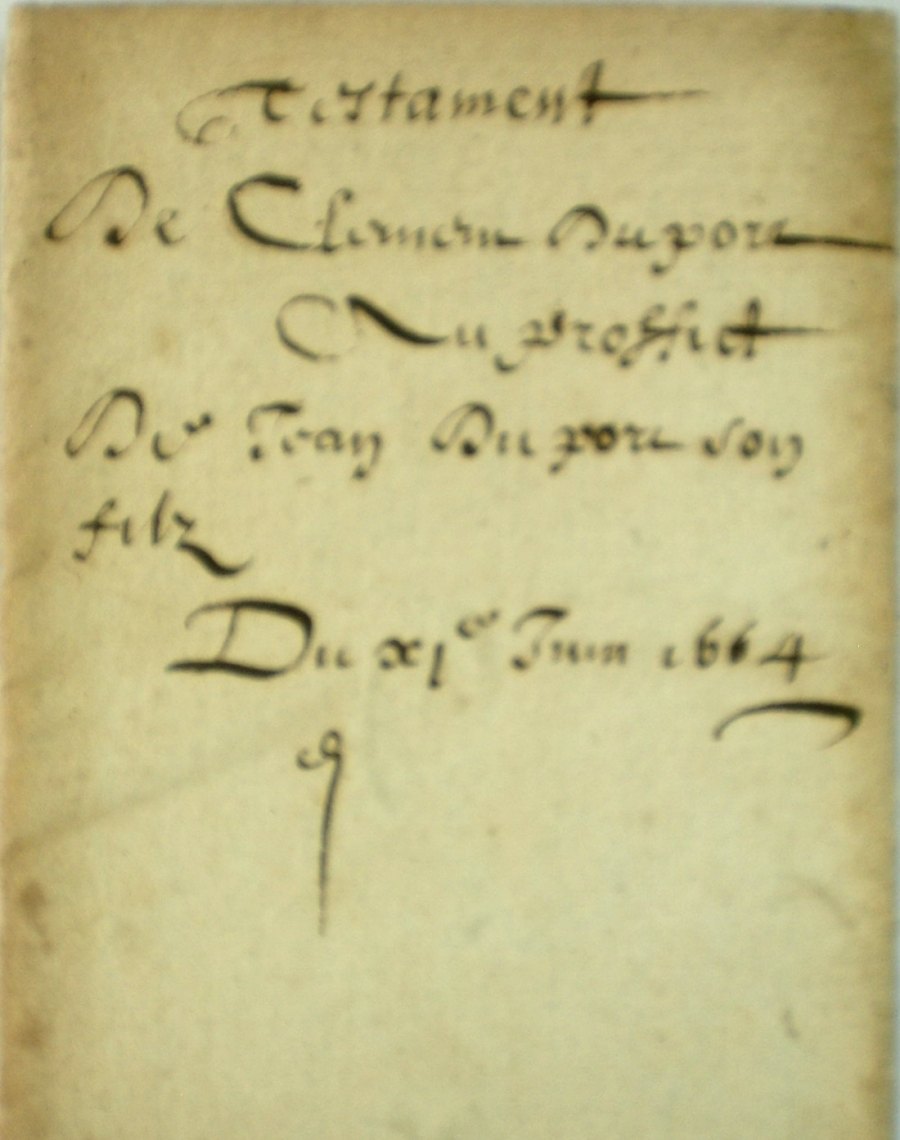 Testament
De Clement Duport
Au proffict
De Jean Du port son
filz
Du xi^e Juin 1664